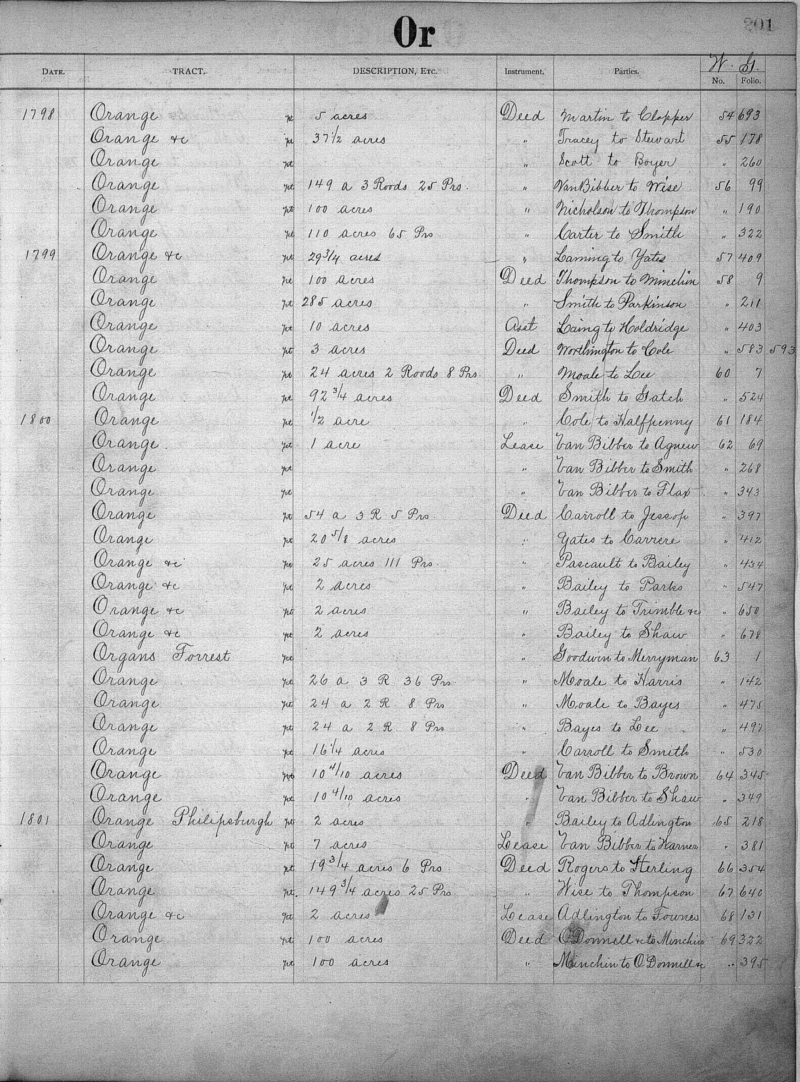 Or
201
W. G.
Date. TRACT. DESCRIPTION, Etc. Instrument. Parties. No. Folio.
1798 Orange pt 5 acres Deed Martin to Clopper 54 693
Orange &c pt 37 1/2 acres " Tracey to Stewart 55 178
Orange pt " Scott to Boyer " 260
Orange pt 149 a 3 Roods 25 Prs. " VanBibber to Wise 56 99
Orange pt 100 acres " Nicholson to Thompson " 190
Orange pt 110 acres 65 Prs " Carter to Smith " 322
1799 Orange &c pt 29 3/4 acres " Laming to Yates 57 409
Orange pt 100 acres Deed Thompson to Minchin 58 9
Orange pt 285 acres " Smith to Parkinson " 211
Orange pt 10 acres Asst Laing to Holdridge " 403
Orange pt 3 acres Deed Worthington to Cole " 583 593
Orange pt 24 acres 2 Roods 8 Prs " Moale to Lee 60 7
Orange pt 92 3/4 acres Deed Smith to Gatch " 524
1800 Orange pt 1/2 acre " Cole to Halfpenny 61 184
Orange pt 1 acre Lease Van Bibber to Agnew 62 69
Orange pt " Van Bibber to Smith " 268
Orange pt " Van Bibber to Flax " 343
Orange pt 54 a 3 R 5 Prs. Deed Carroll to Jessop " 397
Orange pt 20 5/8 acres " Yates to Carrere " 412
Orange &c pt 25 acres 111 Prs. " Pascault to Bailey " 434
Orange &c pt 2 acres " Bailey to Parks " 547
Orange &c pt 2 acres " Bailey to Trimble &c " 650
Orange &c pt 2 acres " Bailey to Shaw " 678
Organs Forrest pt " Goodwin to Merryman 63 1
Orange pt 26 a 3 R 36 Prs " Moale to Harris " 142
Orange pt 24 a 2 R 8 Prs " Moale to Bayes " 475
Orange pt 24 a 2 R 8 Prs " Bayes to Lee " 497
Orange pt 16 1/4 acres " Carroll to Smith " 530
Orange pt 10 4/10 acres Deed Van Bibber to Brown 64 345
Orange pt 10 4/10 acres " Van Bibber to Shaw " 349
1801 Orange Philipsburgh pt 2 acres Bailey to Adlington 65 218
Orange pt 7 acres Lease Van Bibber to Warner " 381
Orange pt 19 3/4 acres 6 Prs Deed Rogers to Herling 66 354
Orange pt. 149 3/4 acres 25 Prs " Wise to Thompson 67 640
Orange &c pt 2 acres Lease Adlington to Townes 68 131
Orange pt 100 acres Deed O'Donnell &c to Minchin 69 322
Orange pt 100 acres " Minchin to O'Donnell &c " 395